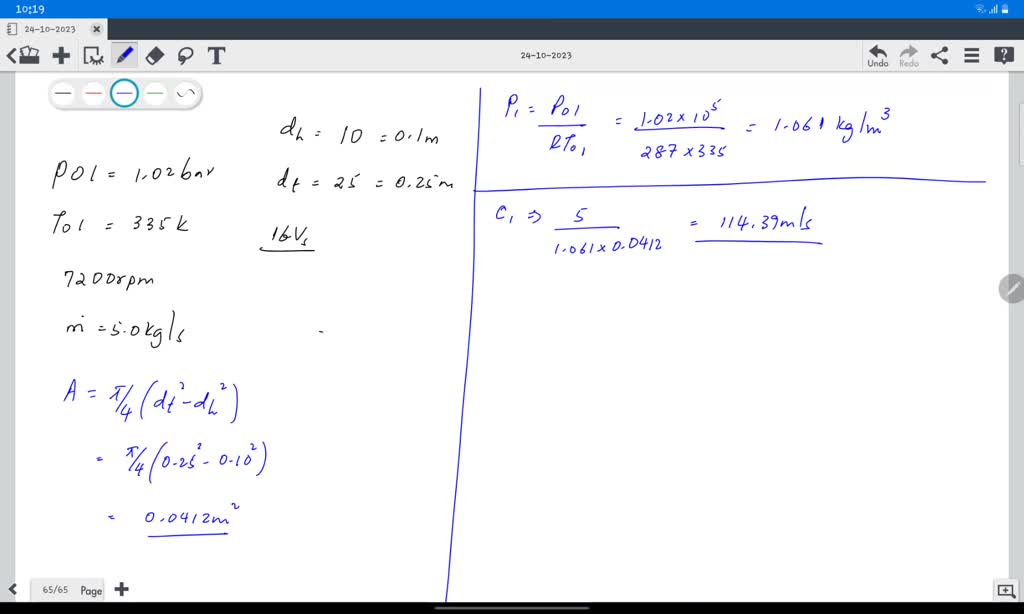 10:19
24-10-2023
T
24-10-2023
Undo
Redo
dh = 10 = 0.1m
P01 = 1.02 bar
dt = 25 = 0.25m
T01 = 335k
16Vs
7200rpm
ṁ = 5.0kg/s
A = π/4 (dt² - dh²)
= π/4 (0.25² - 0.10²)
= 0.0412m²
P1 = P01 / RT01 = 1.02 × 10⁵ / 287 × 335 = 1.061 kg/m³
C1 ⇒ 5 / 1.061 × 0.0412 = 114.39m/s
65/65 Page